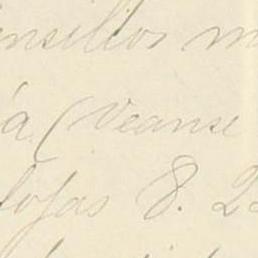 ensilios m
á (Veanse
fojas 8. 2